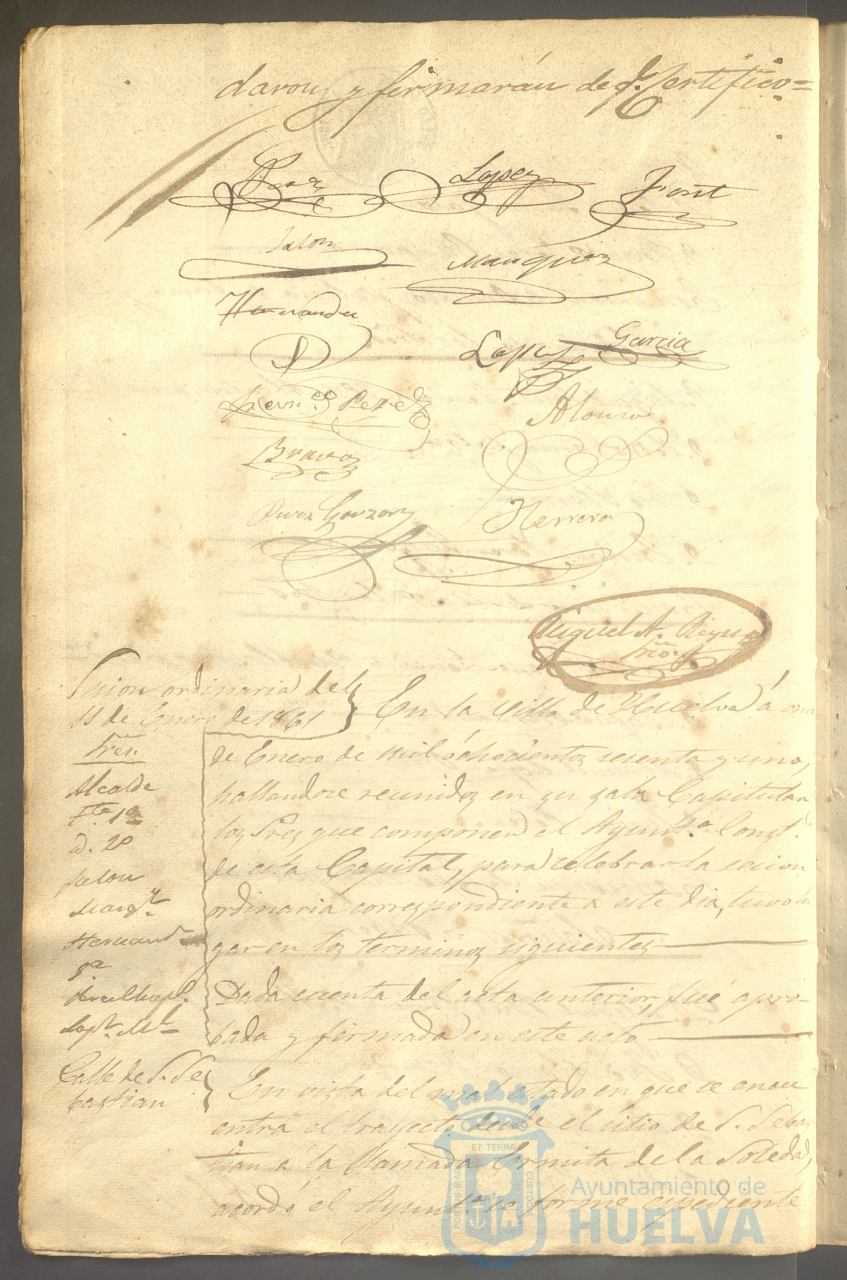 daron y firmarán de q.e Certifico=
Lopez
Font
Jalon
Marquez
Hernandez
Lopez Garcia
Perez
Alonso
Bravo
Garzon
Herrera
Miguel A. Reyes
Srio.
Secion ordinaria del
11 de Enero de 1861
Sres.
Alcalde
Tte. 1º
id. 2º
Jalon
Marq.z
Hernand
G.ª
Lop.z M.l
Calle de S. Se
bastian
En la Villa de Huelva á once
de Enero de mil ochocientos sesenta y uno,
hallandose reunidos en su sala Capitular
los Sres que componen el Ayunt.º Const.l
de esta Capital, para celebrar la secion
ordinaria correspondiente a este dia, tuvo lu
gar en los terminos siguientes
Dada cuenta del acta anterior, fué apro-
bada y firmada en este acto
En vista del mal estado en que se encu
entra el trayecto desde el sitio de S. Sebas
tian a la llamada Ermita de la Soledad,
acordó el Ayunt.º se forme espediente
ET TERRA
Ayuntamiento de
HUELVA